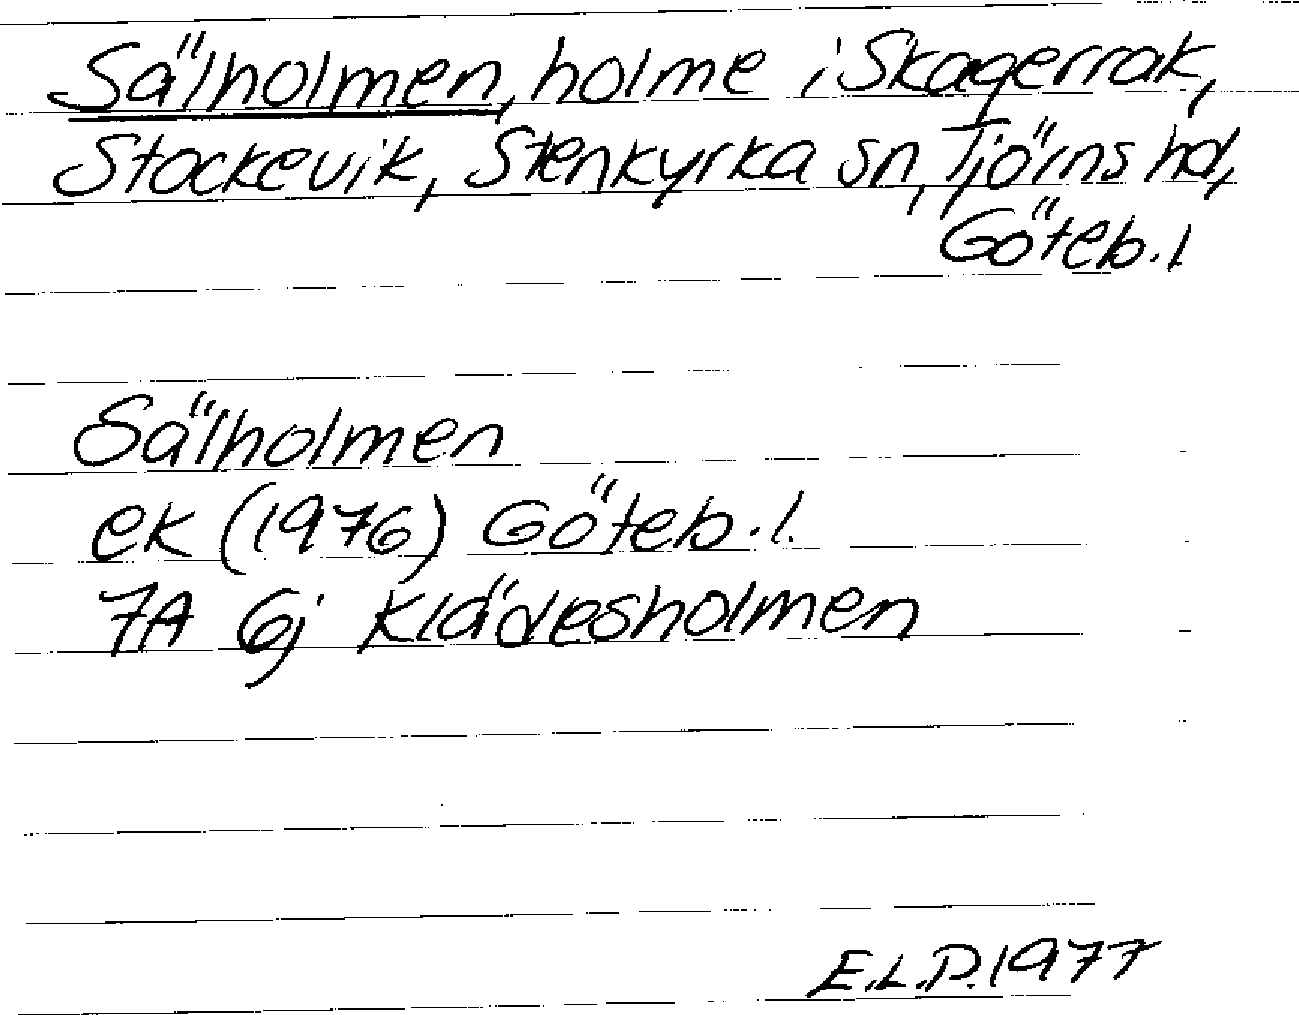 Sälholmen, holme i Skagerrak,
Stockevik, Stenkyrka sn, Tjörns hd,
Göteb. l
Sälholmen
ek (1976) Göteb. l.
7A 6j Klädesholmen
E.L.P. 1977